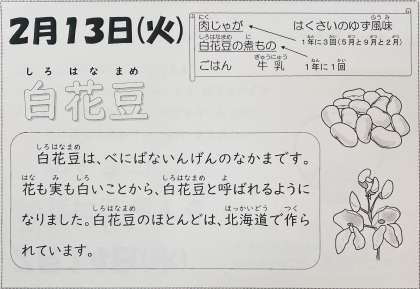 2月13日(火)
肉じゃが　はくさいのゆず風味
白花豆の煮もの　1年に3回(5月と9月と2月)
ごはん　牛乳　1年に1回
白花豆
白花豆は、べにばないんげんのなかまです。
花も実も白いことから、白花豆と呼ばれるように
なりました。白花豆のほとんどは、北海道で作ら
れています。